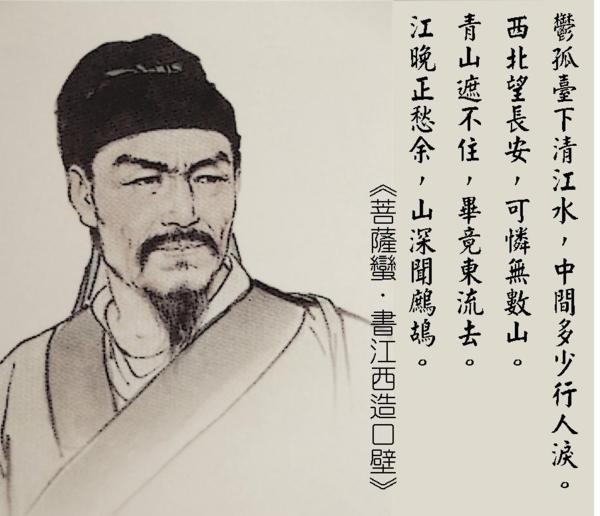 鬱孤臺下清江水，中間多少行人淚。
西北望長安，可憐無數山。
青山遮不住，畢竟東流去。
江晚正愁余，山深聞鷓鴣。
《菩薩蠻·書江西造口壁》